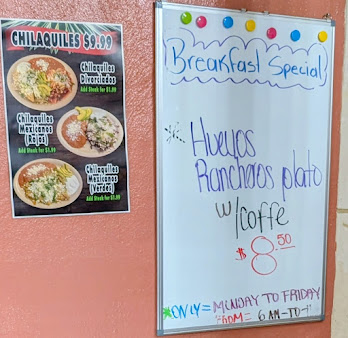 CHILAQUILES $9.99
Chilaquiles
Divorciados
Add Steak for $1.99
Chilaquiles
Mexicanos
(Rojas)
Add Steak for $1.99
Chilaquiles
Mexicanos
(Verdes)
Add Steak for $1.99
Breakfast Special
Huevos
Rancheros plato
w/coffe
$8.50
*ONLY = MONDAY TO FRIDAY
FROM = 6 AM-TO-